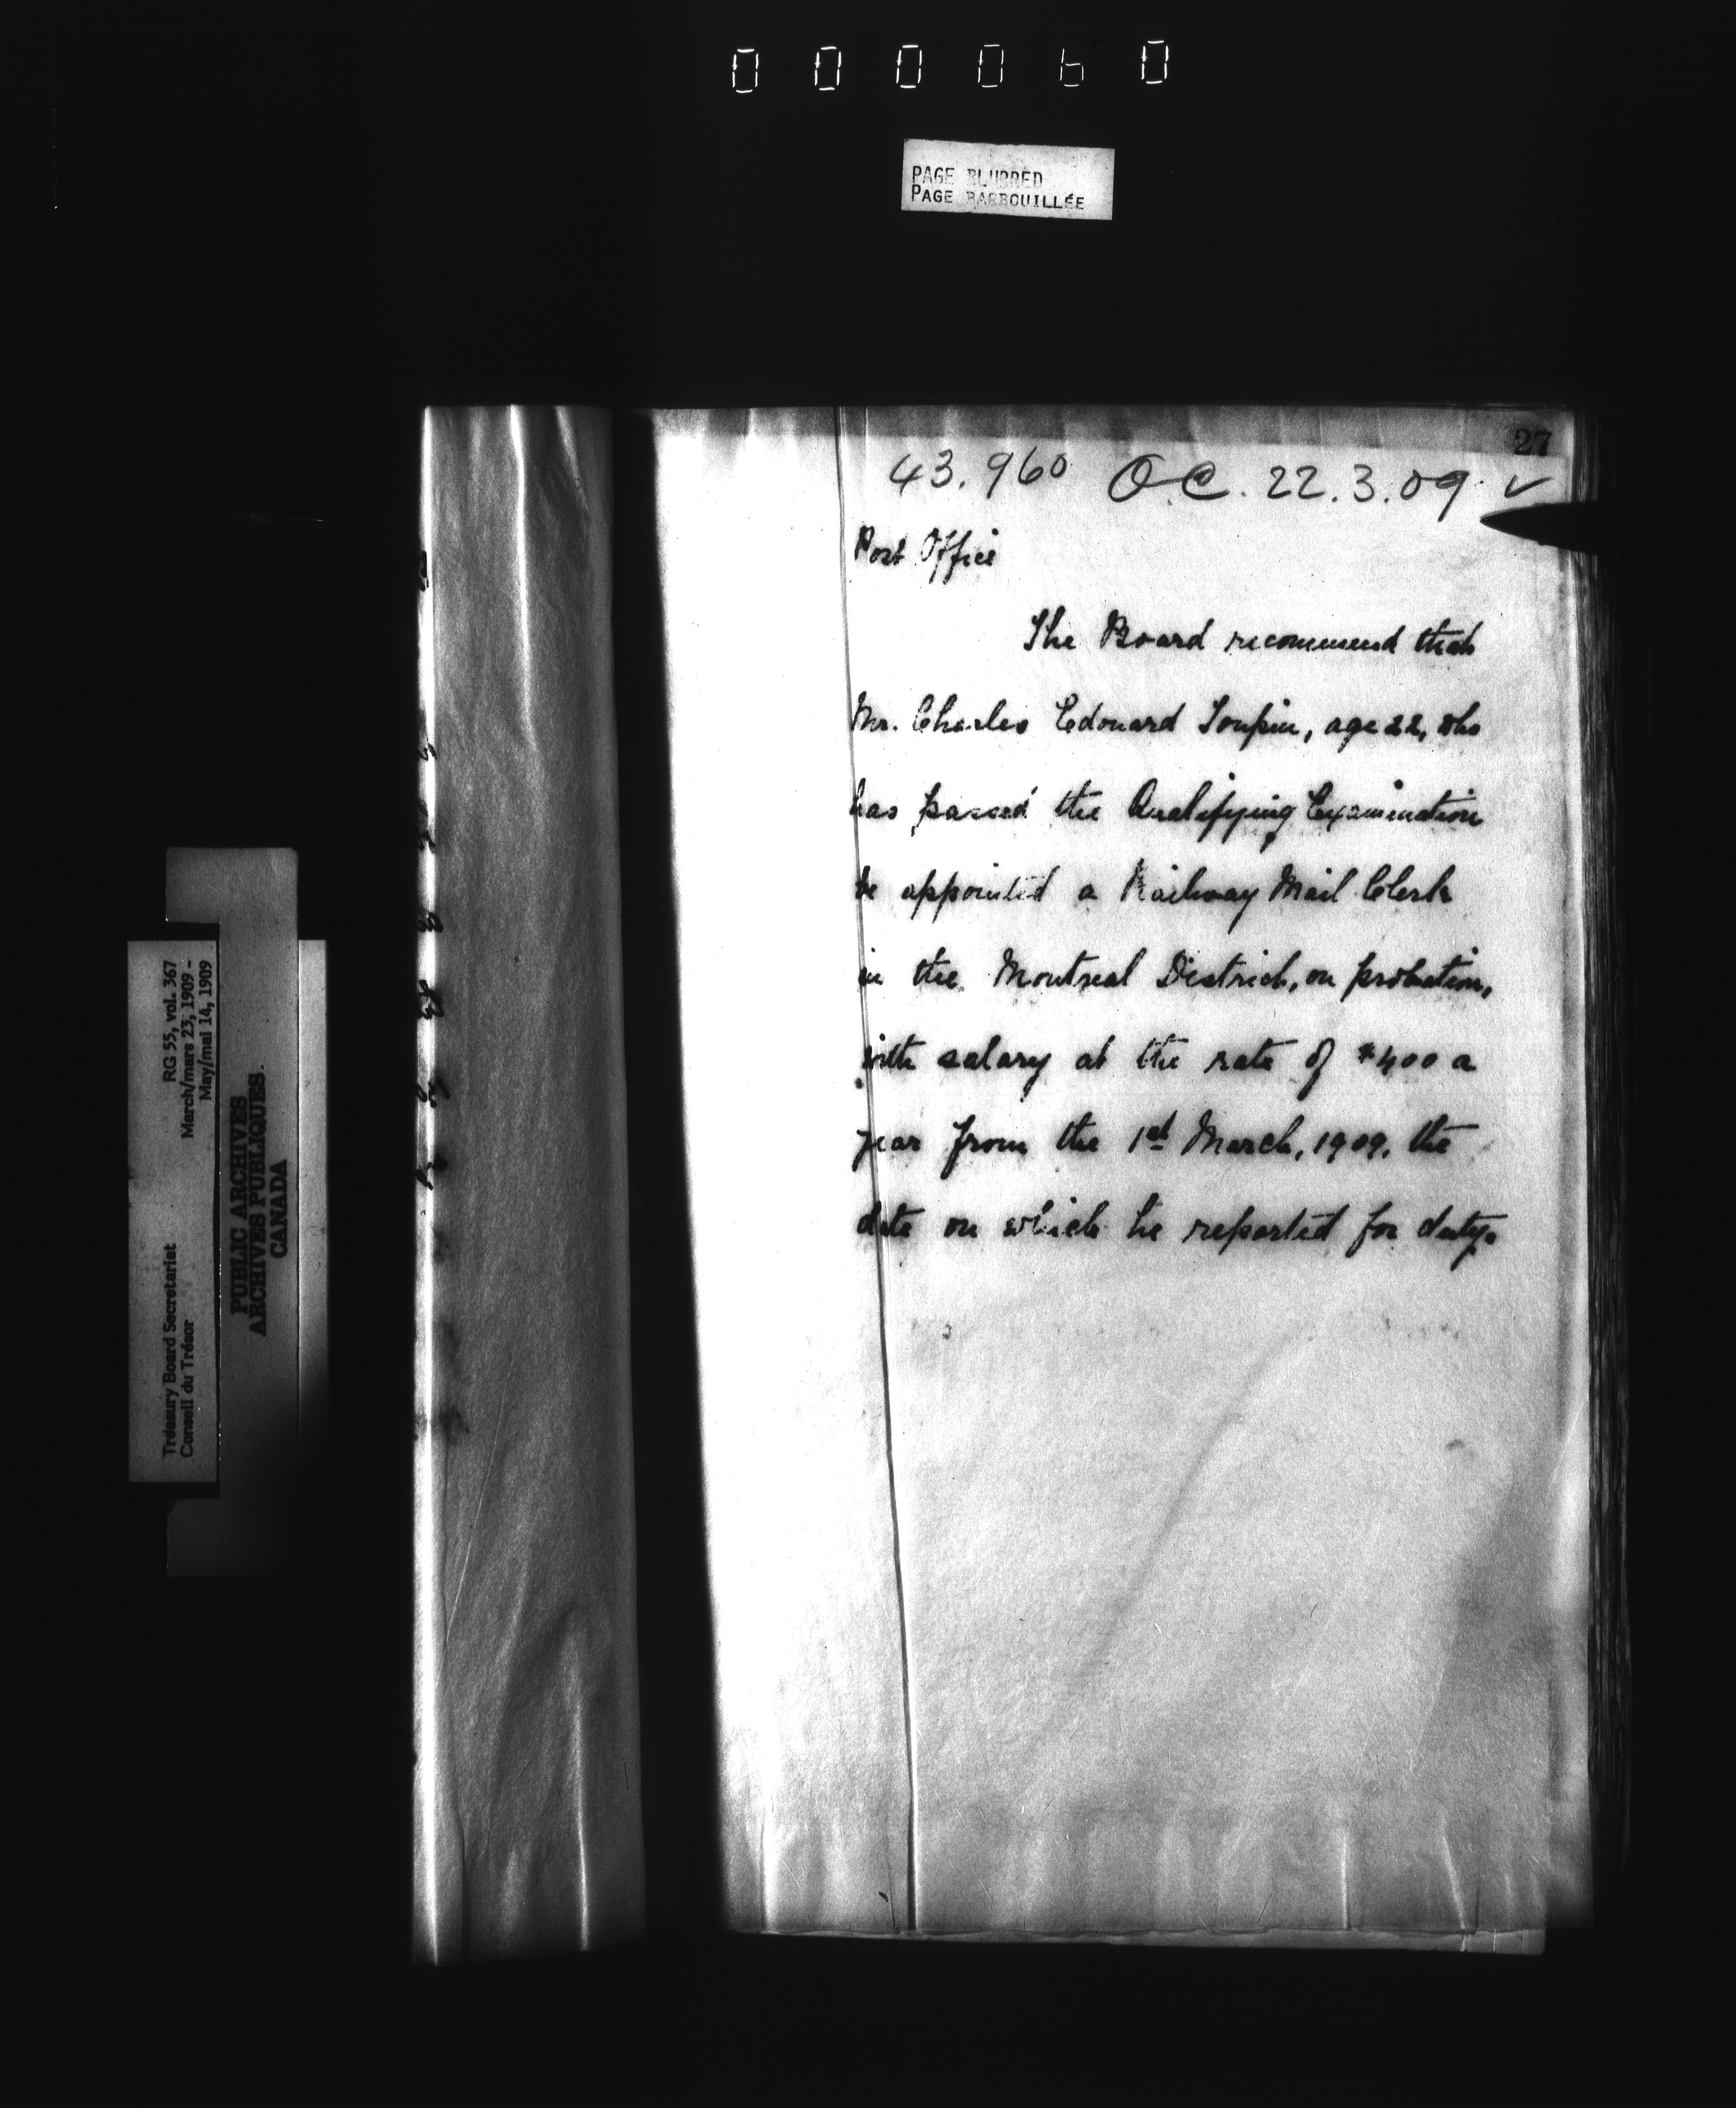 000060
PAGE BLURRED
PAGE BARBOUILLÉE
27
43.960 OC. 22.3.09. ✓
Post Office
The Board recommend that
Mr. Charles Edouard Toupin, age 22, who
has passed the Qualifying Examination
be appointed a Railway Mail Clerk
in the Montreal District, on probation,
with salary at the rate of $400 a
year from the 1st March, 1909, the
date on which he reported for duty.
Treasury Board Secretariat RG 55, vol. 367
Conseil du Trésor March/mars 23, 1909 -
May/mai 14, 1909
PUBLIC ARCHIVES
ARCHIVES PUBLIQUES
CANADA